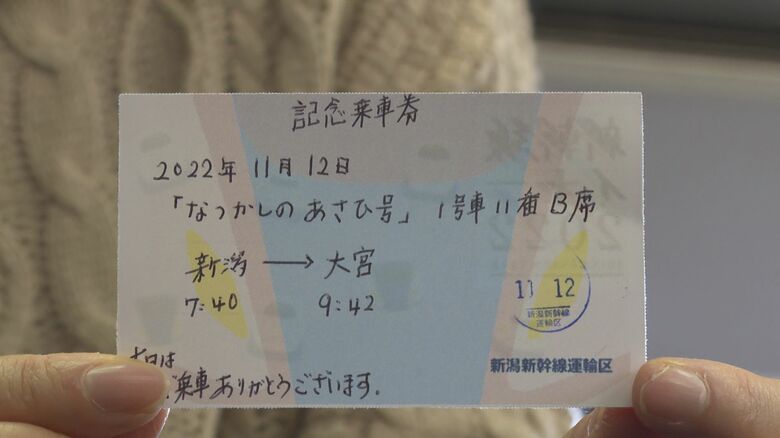 記念乗車券
2022年 11月 12日
「なつかしの あさひ号」 1号車 11番 B席
新潟 → 大宮
7:40 9:42
11 12
新潟新幹線
運輸区
新潟新幹線運輸区
本日は
ご乗車ありがとうございます.